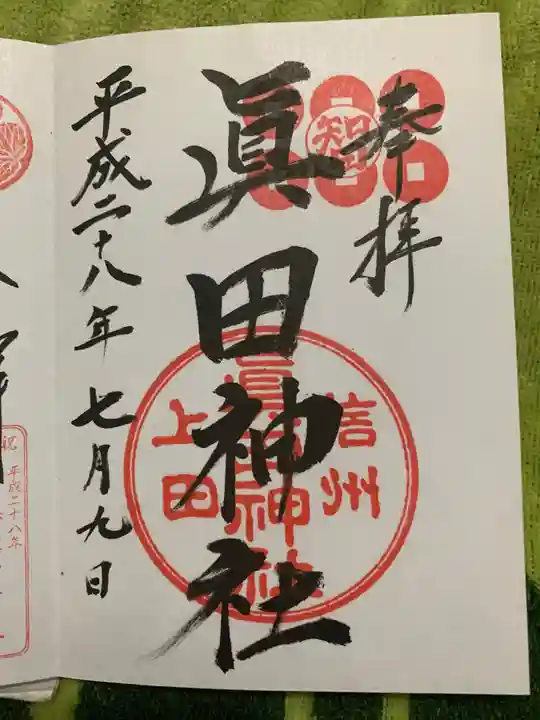 奉拝
智
眞田神社
信州
眞田神社
上田
平成二十八年七月九日
祝 平成二十八年